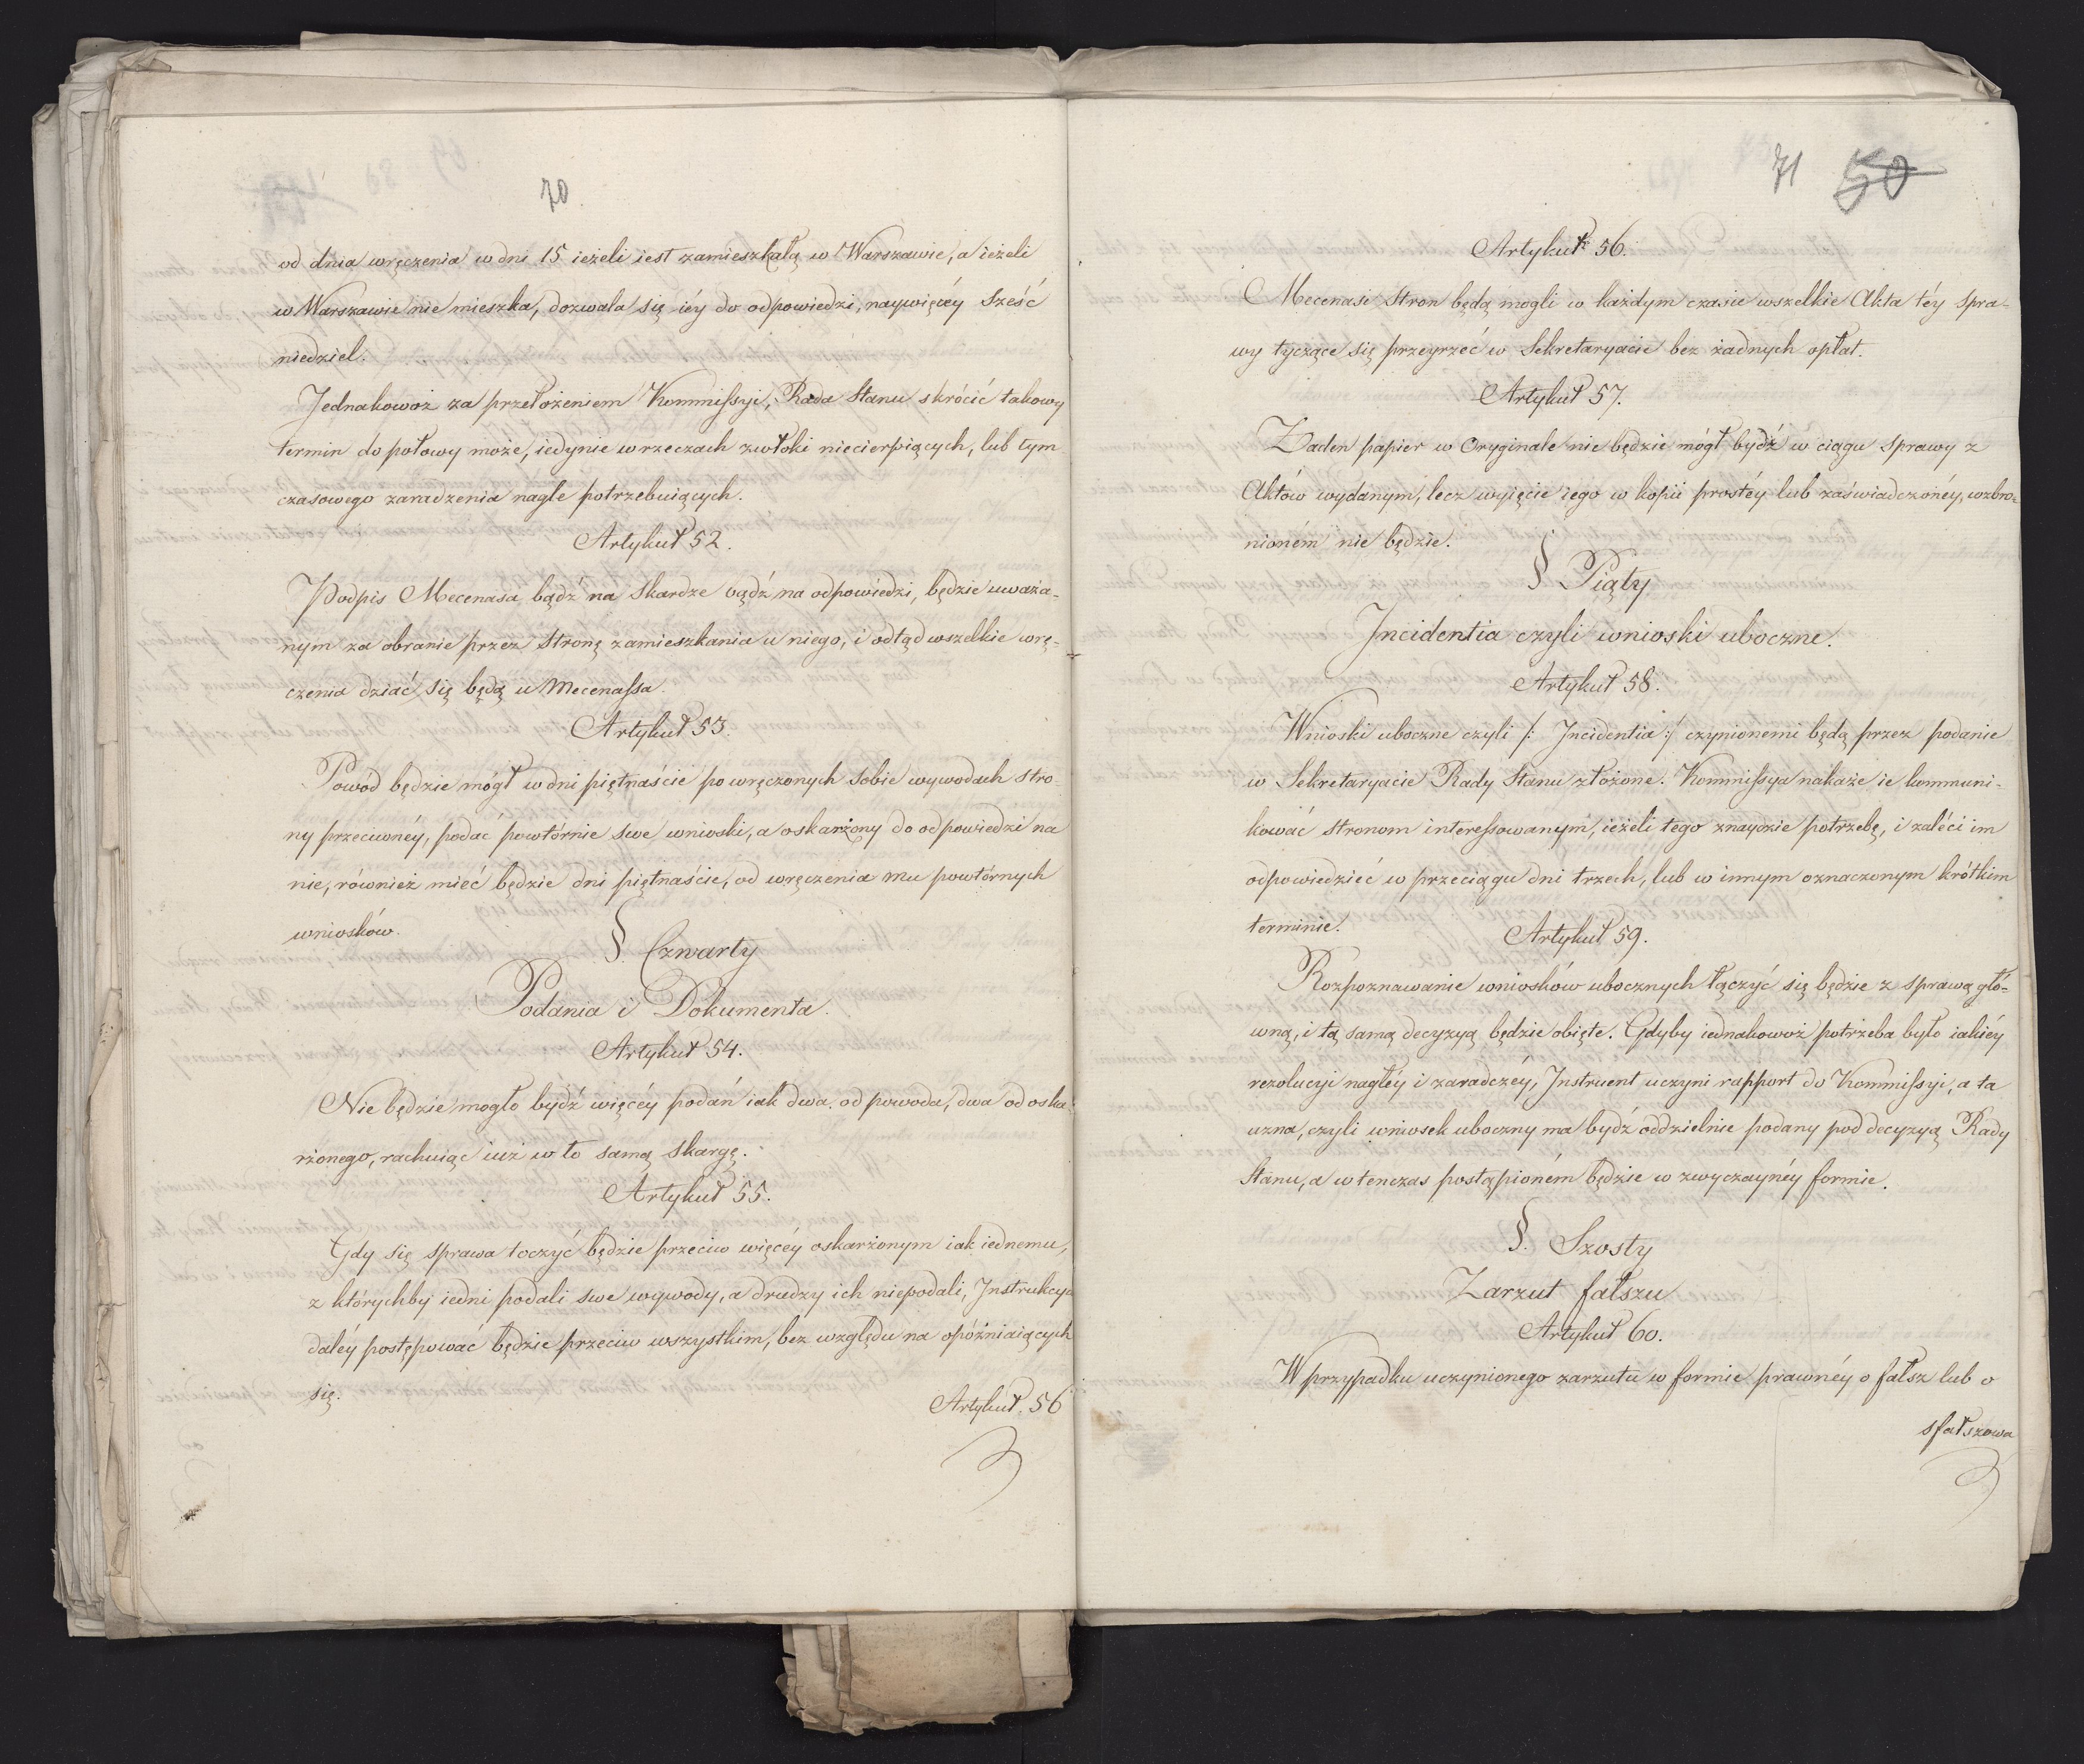 70.
od dnia wręczenia w dni 15 ieżeli iest zamieszkałą w Warszawie, a ieżeli
w Warszawie nie mieszka, dozwala się iéy do odpowiedzi, naywięcéy sześć
niedziel.
Jednakowoż za przełożeniem Kommissyi, Rada Stanu skrócić takowy
termin do połowy może, iedynie w rzeczach zwłoki niecierpiących, lub tym
czasowego zaradzenia nagle potrzebuiących.
Artykuł 52.
Podpis Mecenasa bądź na skardze bądź na odpowiedzi, będzie uważa-
nym za obranie przez stronę zamieszkania u niego, i odtąd wszelkie wrę-
czenia dziać się będą u Mecenassa.
Artykuł 53.
Powód będzie mógł w dni piętnaście po wręczonych sobie wywodach stro-
ny przeciwnéy, podać powtórnie swe wnioski, a oskarżony do odpowiedzi na
nie, również mieć będzie dni piętnaście, od wręczenia mu powtórnych
wniosków.
§. Czwarty
Podania i Dokumenta.
Artykuł 54.
Nie będzie mogło bydź więcéy podań iak dwa od powoda, dwa od oska-
rżonego, rachuiąc iuż w to samą skargę.
Artykuł 55.
Gdy się sprawa toczyć będzie przeciw więcéy oskarżonym iak iednemu,
z którychby iedni podali swe wywody, a drudzy ich niepodali, Instrukcya
daléy postępować będzie przeciw wszystkim, bez względu na opóźniaiących
się.
Artykuł. 56
71 50
Artykuł 56.
Mecenasi stron będą mogli w każdym czasie wszelkie Akta téy spra-
wy tyczące się przeyrzeć w Sekretaryacie bez żadnych opłat.
Artykuł 57.
Żaden papier w Oryginale nie będzie mógł bydź w ciągu sprawy z
Aktów wydanym, lecz wyięcie iego w kopii prostéy lub zaświadczonéy, wzbro-
nioném nie będzie.
§ Piąty
Incidentia czyli wnioski uboczne.
Artykuł 58.
Wnioski uboczne czyli /: Incidentia :/ czynionemi będą przez podanie
w Sekretaryacie Rady Stanu złożone. Kommissya nakaże ie kommuni-
kować stronom interessowanym, ieżeli tego znaydzie potrzebę, i zaléci im
odpowiedzieć w przeciągu dni trzech, lub w innym oznaczonym krótkim
terminie.
Artykuł 59.
Rozpoznawanie wniosków ubocznych łączyć się będzie z sprawą głó-
wną, i tą samą decyzyą będzie obięte. Gdyby iednakowoż potrzeba było iakiéy
rezolucyi nagłéy i zaradczéy, Instruent uczyni rapport do Kommissyi, a ta
uzna, czyli wniosek uboczny ma bydź oddzielnie podany pod decyzyą Rady
Stanu, a w tenczas postąpioném będzie w zwyczaynéy formie.
§. Szosty
Zarzut fałszu
Artykuł 60.
W przypadku uczynionego zarzutu w formie prawnéy o fałsz lub o
sfałszowa